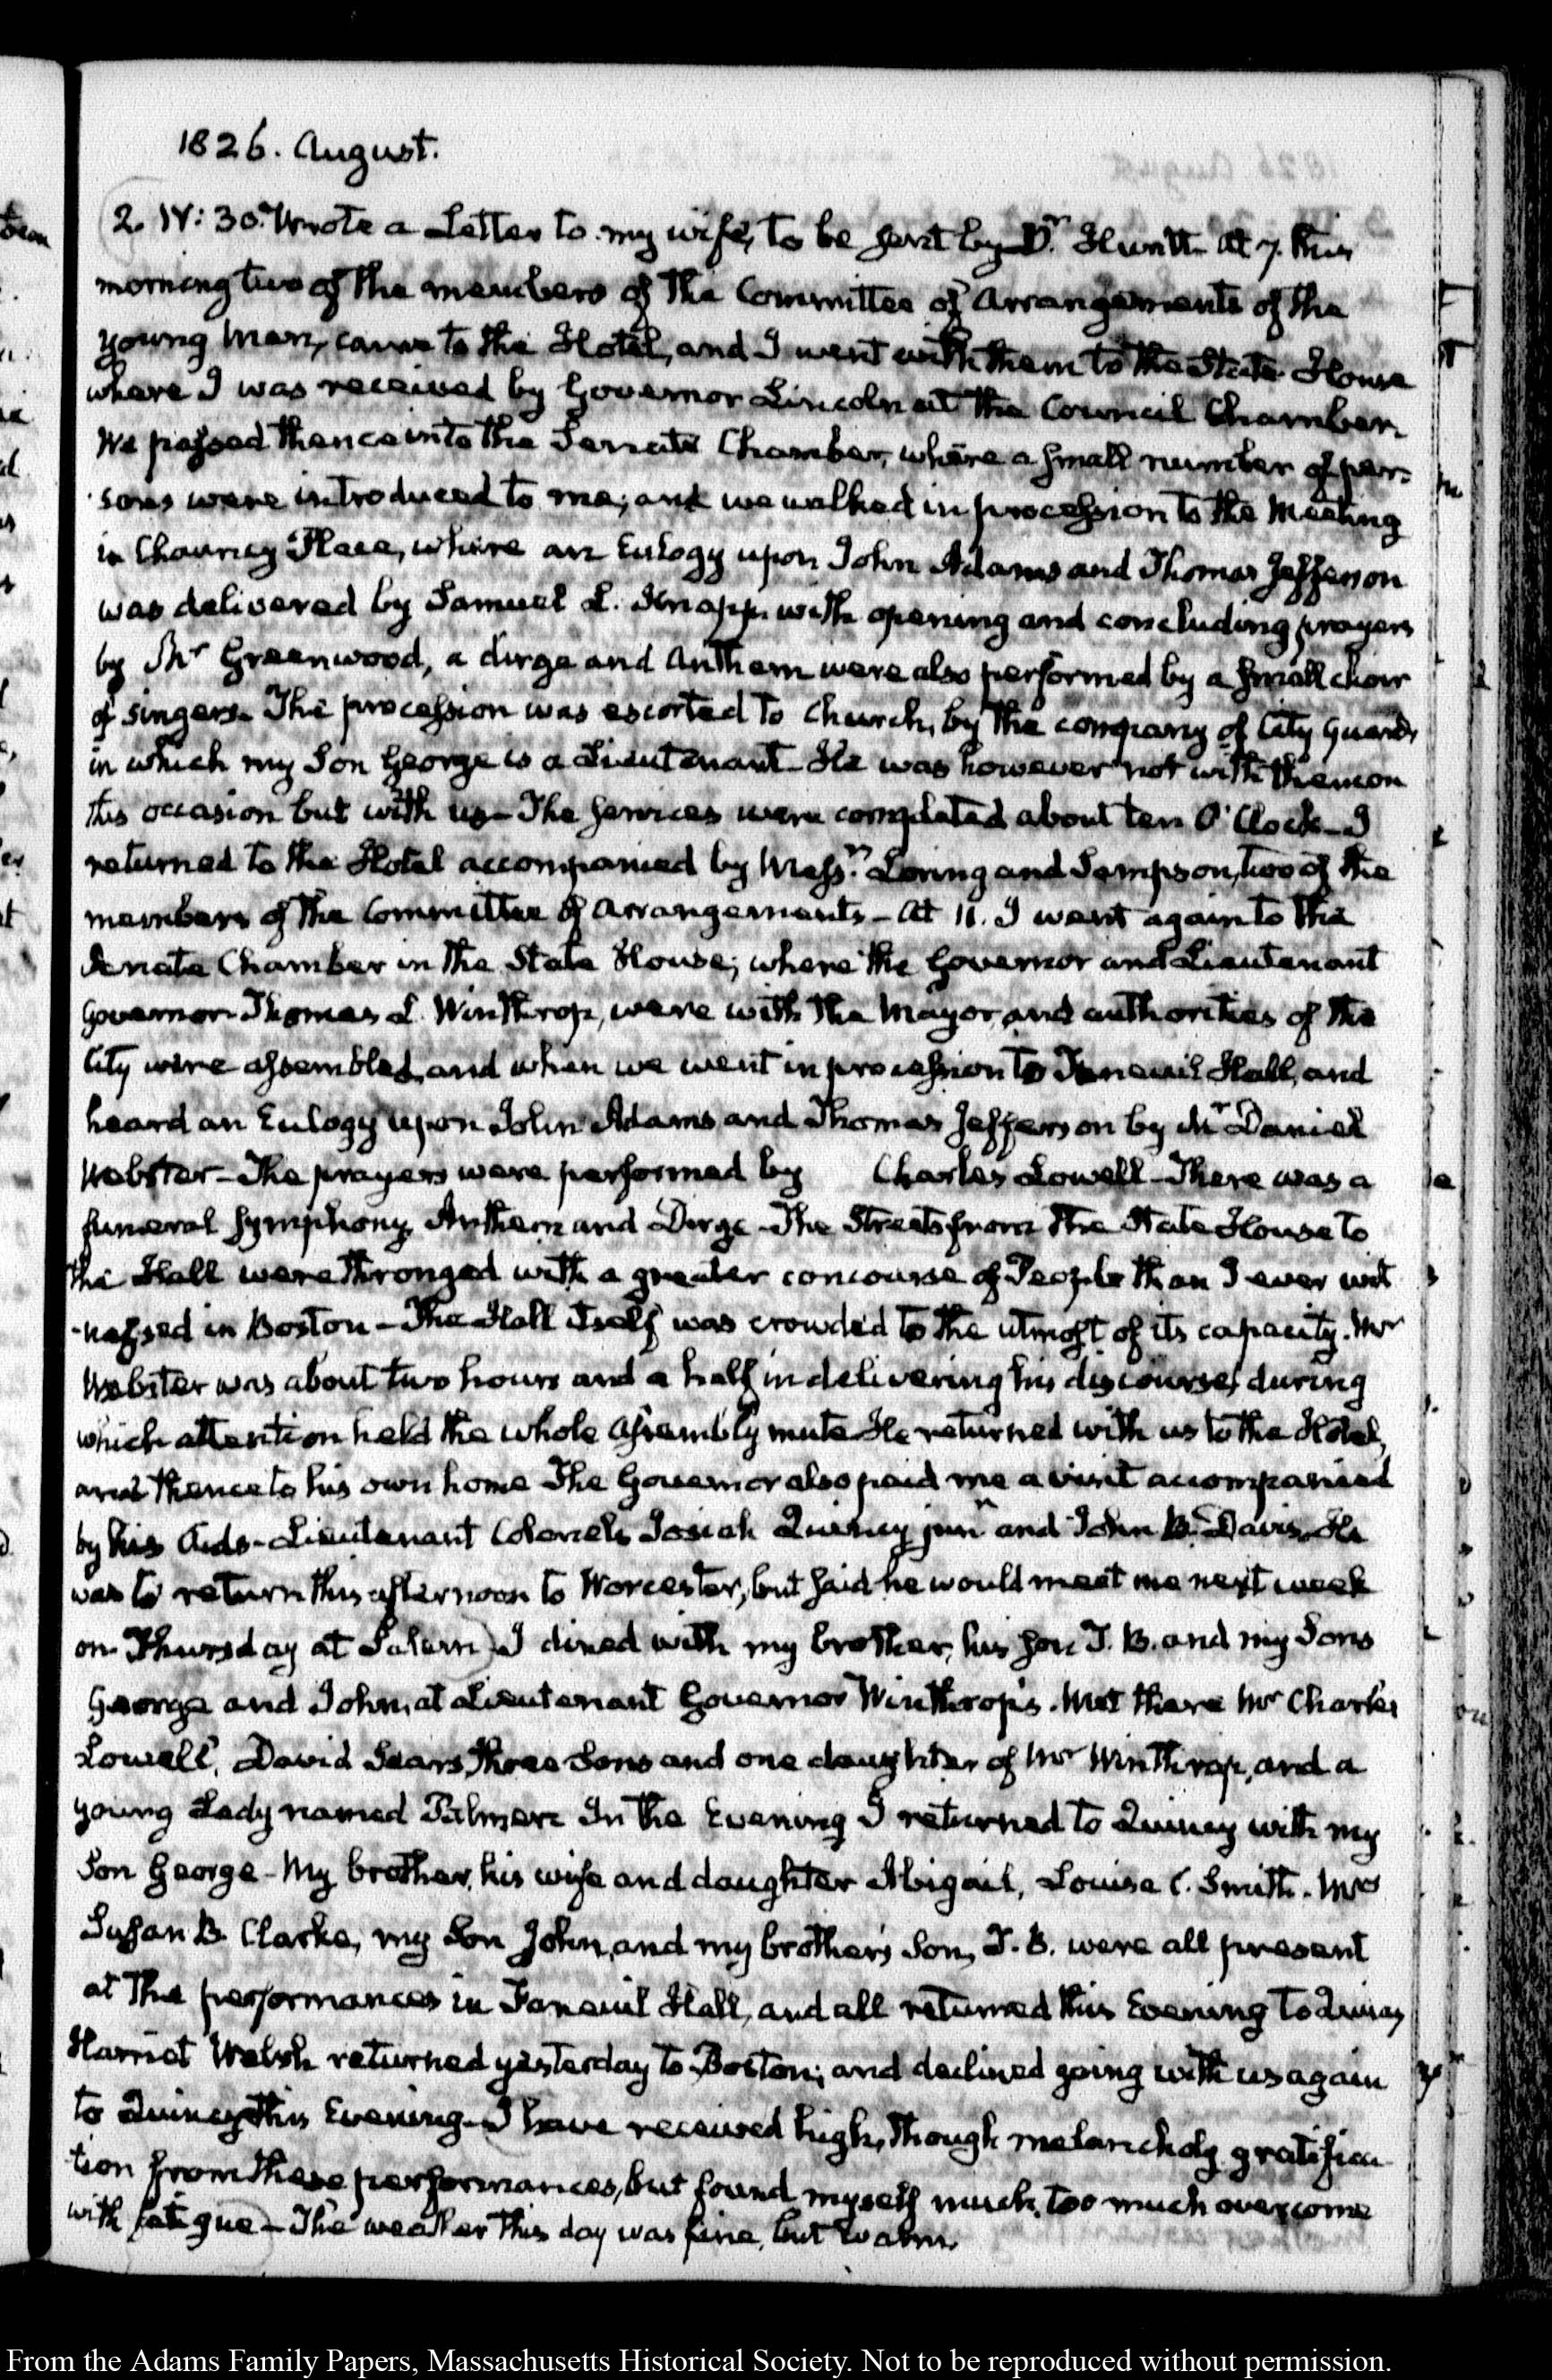 1826. August.
2. IV: 30. Wrote a Letter to my wife, to be sent by Dr. Huntt. At 7. this
morning two of the members of the Committee of Arrangements of the
young Men, came to the Hotel, and I went with them to the State House
where I was received by Governor Lincoln at the Council Chamber.
We passed thence into the Senate Chamber, where a small number of per-
sons were introduced to me; and we walked in procession to the Meeting
in Chauncy Place, where an Eulogy upon John Adams and Thomas Jefferson
was delivered by Samuel L. Knapp with opening and concluding prayers
by Mr Greenwood, a dirge and Anthem were also performed by a small choir
of singers. The procession was escorted to Church, by the company of City Guards,
in which my Son George is a Lieutenant - He was however not with them on
this occasion but with us - The services were completed about ten O'Clock - I
returned to the Hotel accompanied by Messrs. Loring and Sampson, two of the
members of the Committee of Arrangements - At 11. I went again to the
Senate Chamber in the State House; where the Governor and Lieutenant
Governor Thomas L. Winthrop, were with the Mayor and authorities of the
City were assembled, and when we went in procession to Faneuil Hall, and
heard an Eulogy upon John Adams and Thomas Jefferson by Mr Daniel
Webster - The prayers were performed by Charles Lowell - There was a
funeral Symphony, Anthem and Dirge - The Streets from the State House to
the Hall were thronged with a greater concourse of People than I ever wit
-nessed in Boston - The Hall itself was crowded to the utmost of its capacity. Mr
Webster was about two hours and a half in delivering his discourse, during
which attention held the whole assembly mute. He returned with us to the Hotel,
and thence to his own home The Governor also paid me a visit accompanied
by his Aids - Lieutenant Colonels Josiah Quincy junr and John B. Davis. He
was to return this afternoon to Worcester, but said he would meet me next week
on Thursday at Salem) I dined with my brother, his son T. B. and my Sons
George and John, at Lieutenant Governor Winthrop's. Met there Mr Charles
Lowell, David Sears, three Sons and one daughter of Mr Winthrop, and a
young Lady named Palmer. In the Evening I returned to Quincy with my
Son George - My brother, his wife and daughter Abigail, Louisa C. Smith. Mrs
Susan B. Clarke, my Son John, and my brother's Son, T. B. were all present
at the performances in Faneuil Hall, and all returned this Evening to Quincy
Harriet Welsh returned yesterday to Boston; and declined going with us again
to Quincy this Evening - I have received high, though melancholy gratifica-
tion from these performances, but found myself much, too much overcome
with fatigue - The weather this day was fine, but warm.
From the Adams Family Papers, Massachusetts Historical Society. Not to be reproduced without permission.